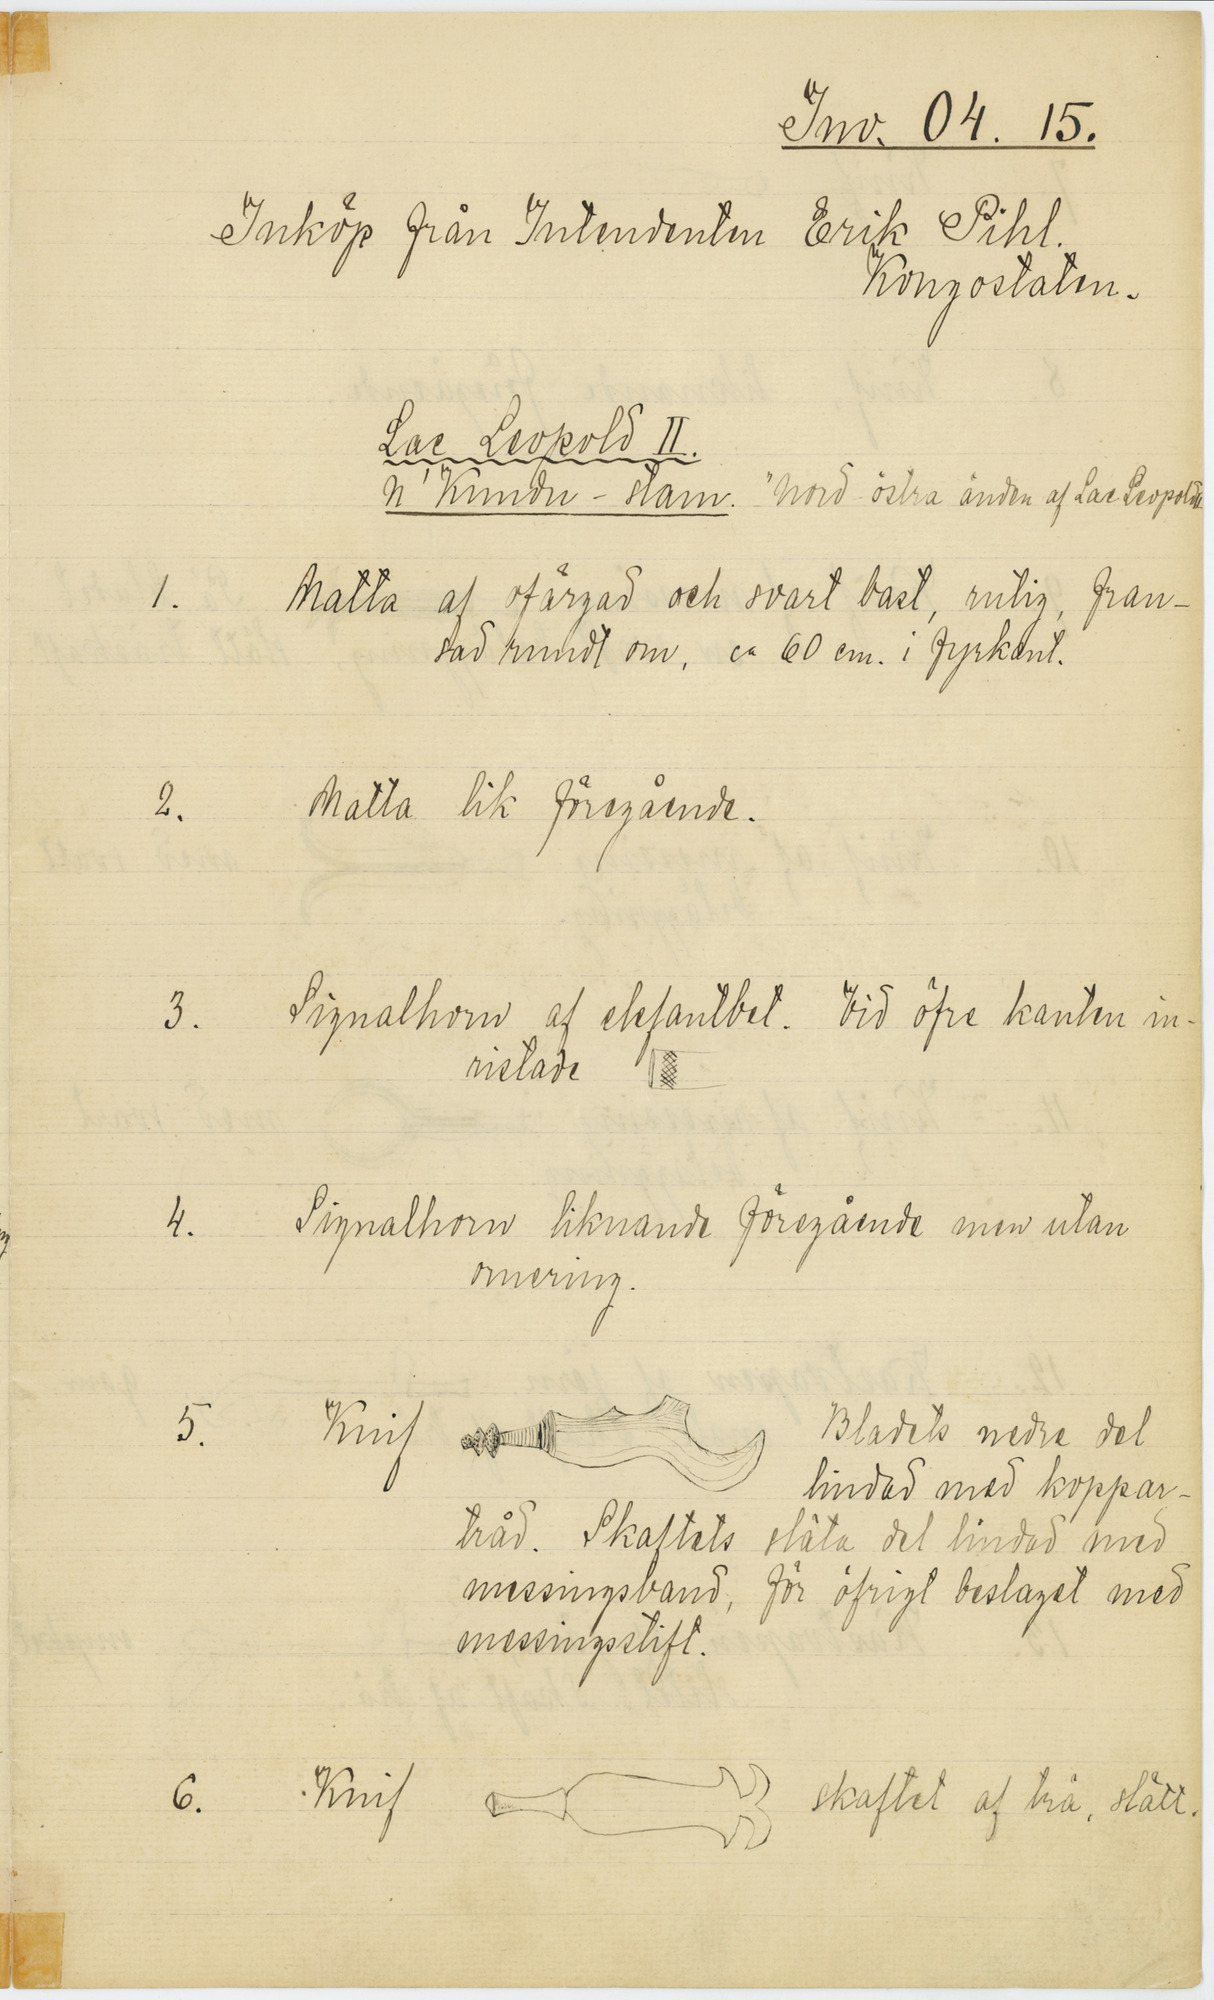 Inv. 04. 15.
Inköp från Intendenten Erik Pihl.
Kongostaten.
Lac Leopold II.
N'Kundu-stam. "Nord östra änden af Lac Leopold
1. Matta af ofärgad och svart bast, rutig, fran-
sad rundt om, ca 60 cm. i fyrkant.
2. Matta lik föregående.
3. Signalhorn af elefantbet. Vid öfre kanten in-
ristade
4. Signalhorn liknande föregående men utan
ornering.
5. Knif Bladets nedre del
lindad med koppar-
tråd. Skaftets släta del lindad med
messingsband, för öfrigt beslaget med
messingsstift.
6. Knif skaftet af trä, slätt.